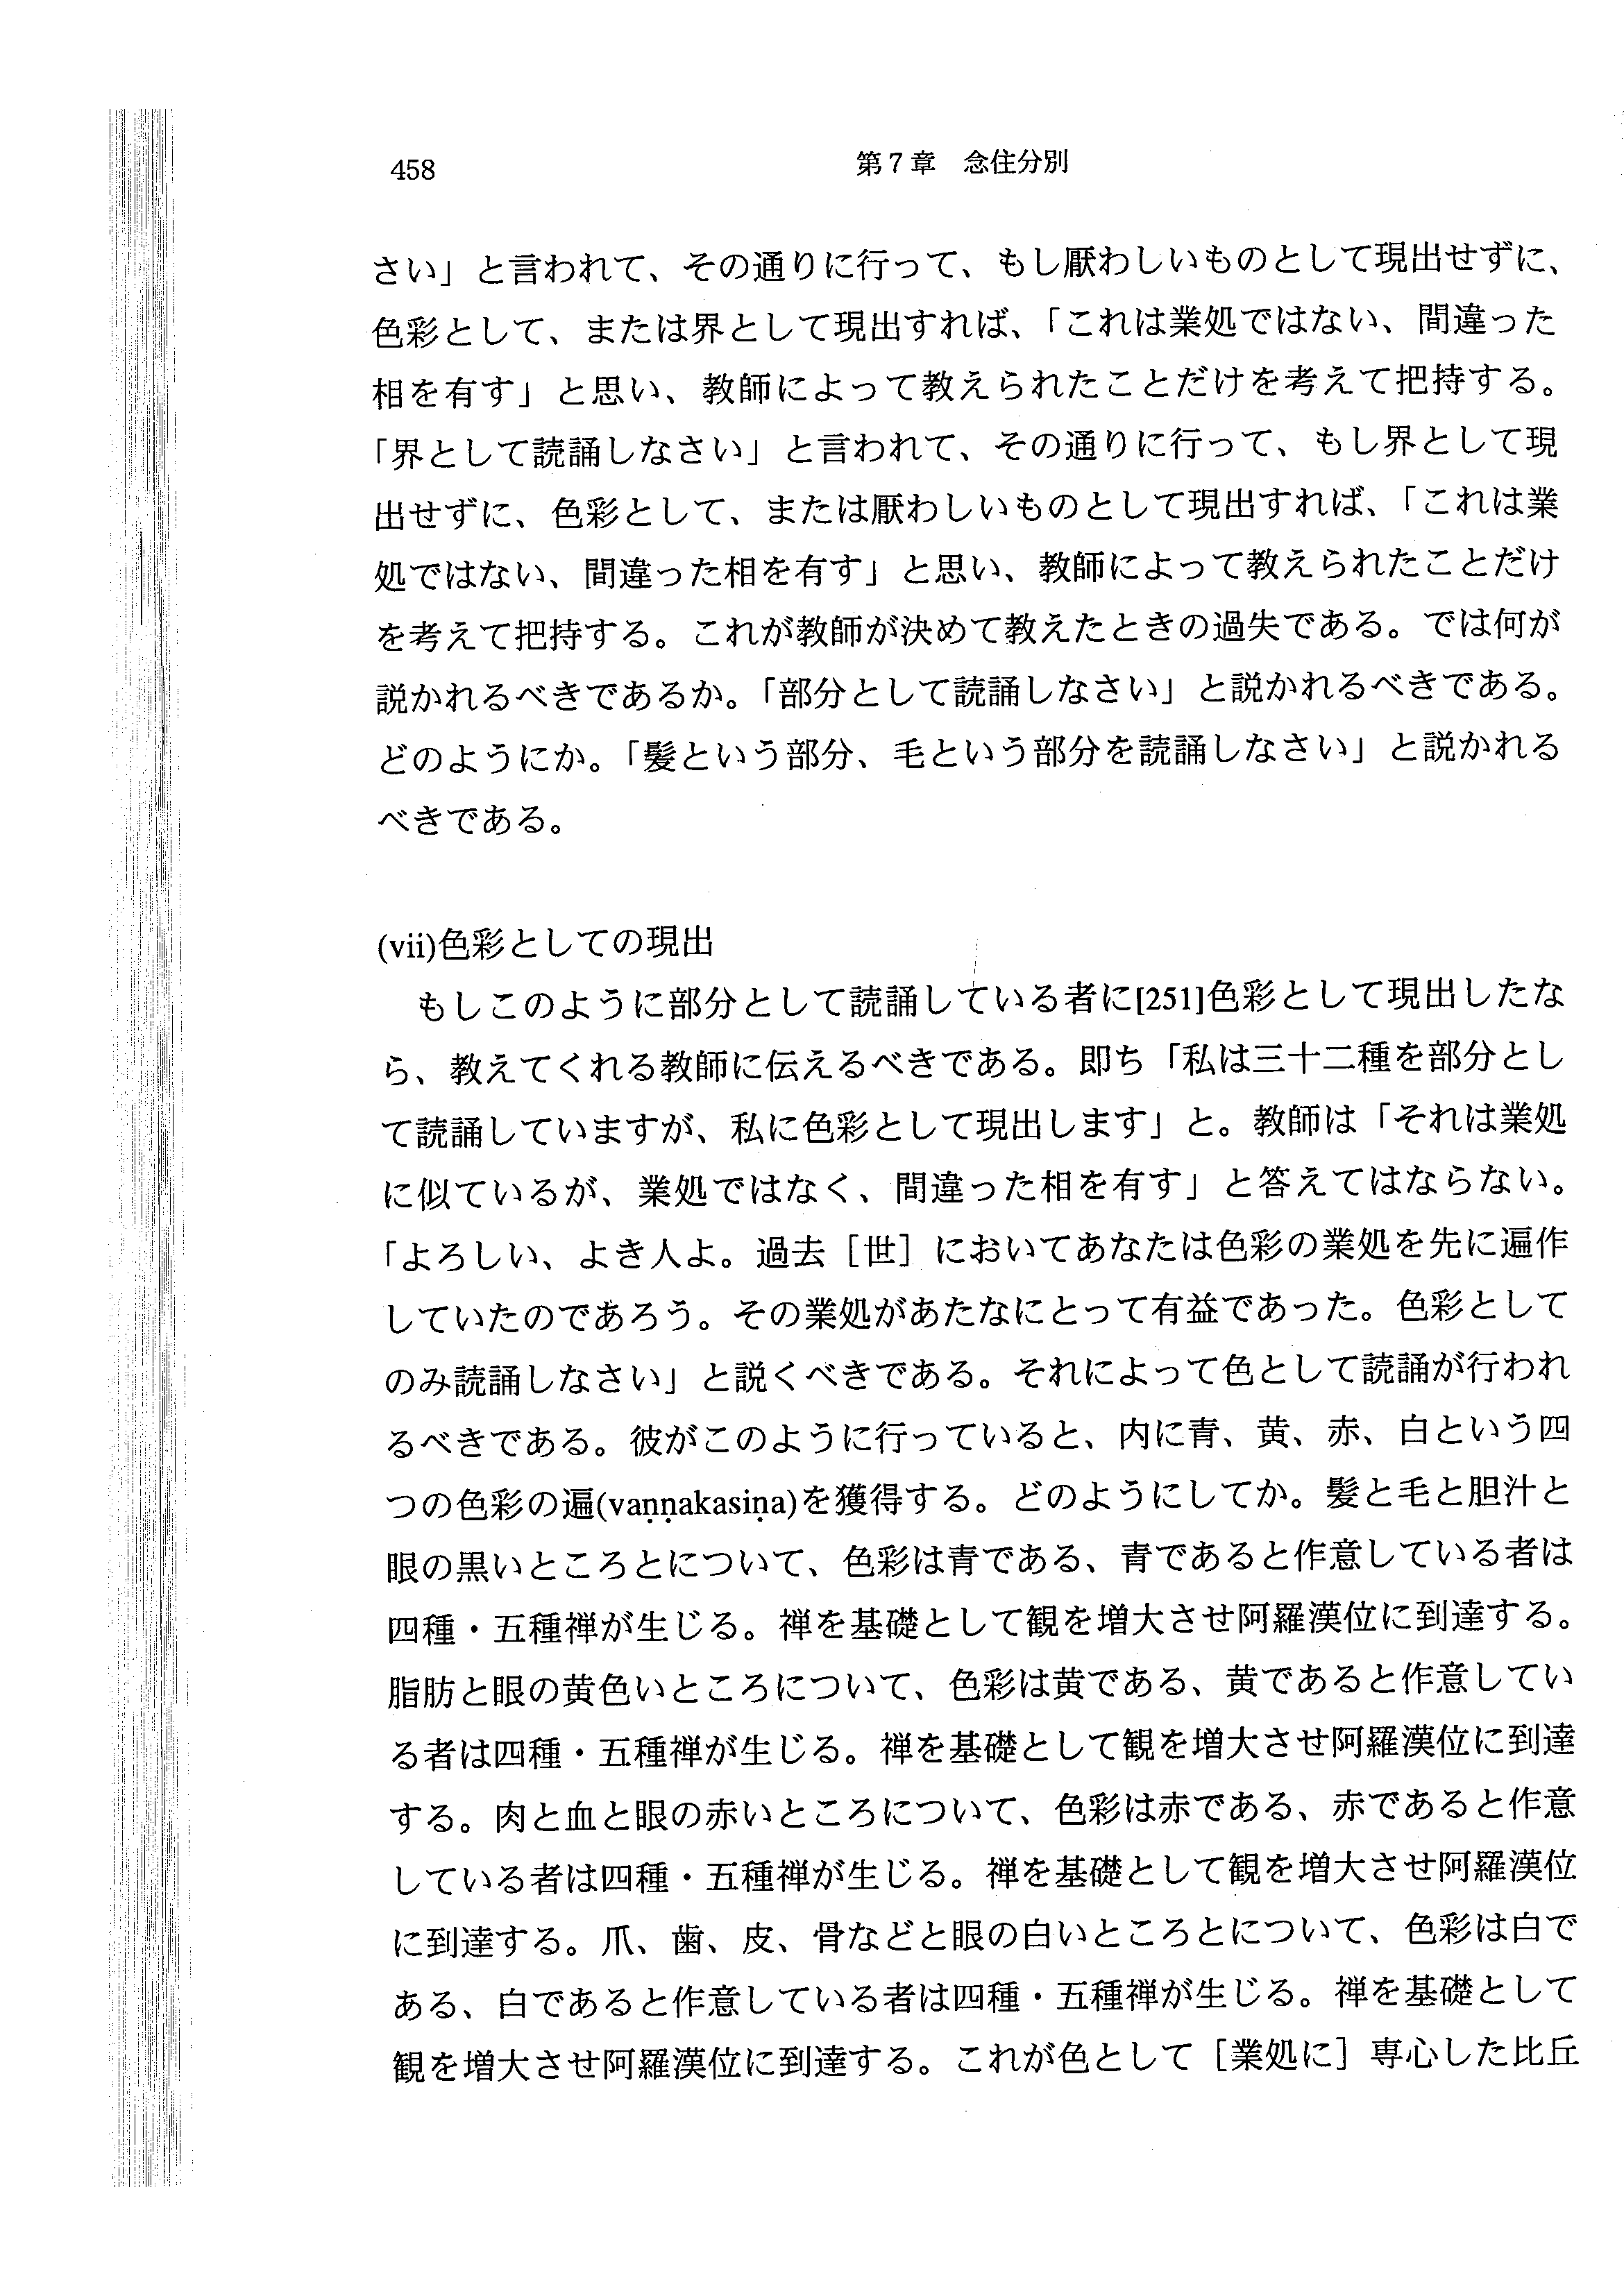 458
第7章　念住分別
さい」と言われて、その通りに行って、もし厭わしいものとして現出せずに、
色彩として、または界として現出すれば、「これは業処ではない、間違った
相を有す」と思い、教師によって教えられたことだけを考えて把持する。
「界として読誦しなさい」と言われて、その通りに行って、もし界として現
出せずに、色彩として、または厭わしいものとして現出すれば、「これは業
処ではない、間違った相を有す」と思い、教師によって教えられたことだけ
を考えて把持する。これが教師が決めて教えたときの過失である。では何が
説かれるべきであるか。「部分として読誦しなさい」と説かれるべきである。
どのようにか。「髪という部分、毛という部分を読誦しなさい」と説かれる
べきである。
(vii)色彩としての現出
もしこのように部分として読誦している者に[251]色彩として現出したな
ら、教えてくれる教師に伝えるべきである。即ち「私は三十二種を部分とし
て読誦していますが、私に色彩として現出します」と。教師は「それは業処
に似ているが、業処ではなく、間違った相を有す」と答えてはならない。
「よろしい、よき人よ。過去［世］においてあなたは色彩の業処を先に遍作
していたのであろう。その業処があたなにとって有益であった。色彩として
のみ読誦しなさい」と説くべきである。それによって色として読誦が行われ
るべきである。彼がこのように行っていると、内に青、黄、赤、白という四
つの色彩の遍(vaṇṇakasiṇa)を獲得する。どのようにしてか。髪と毛と胆汁と
眼の黒いところとについて、色彩は青である、青であると作意している者は
四種・五種禅が生じる。禅を基礎として観を増大させ阿羅漢位に到達する。
脂肪と眼の黄色いところについて、色彩は黄である、黄であると作意してい
る者は四種・五種禅が生じる。禅を基礎として観を増大させ阿羅漢位に到達
する。肉と血と眼の赤いところについて、色彩は赤である、赤であると作意
している者は四種・五種禅が生じる。禅を基礎として観を増大させ阿羅漢位
に到達する。爪、歯、皮、骨などと眼の白いところとについて、色彩は白で
ある、白であると作意している者は四種・五種禅が生じる。禅を基礎として
観を増大させ阿羅漢位に到達する。これが色として［業処に］専心した比丘